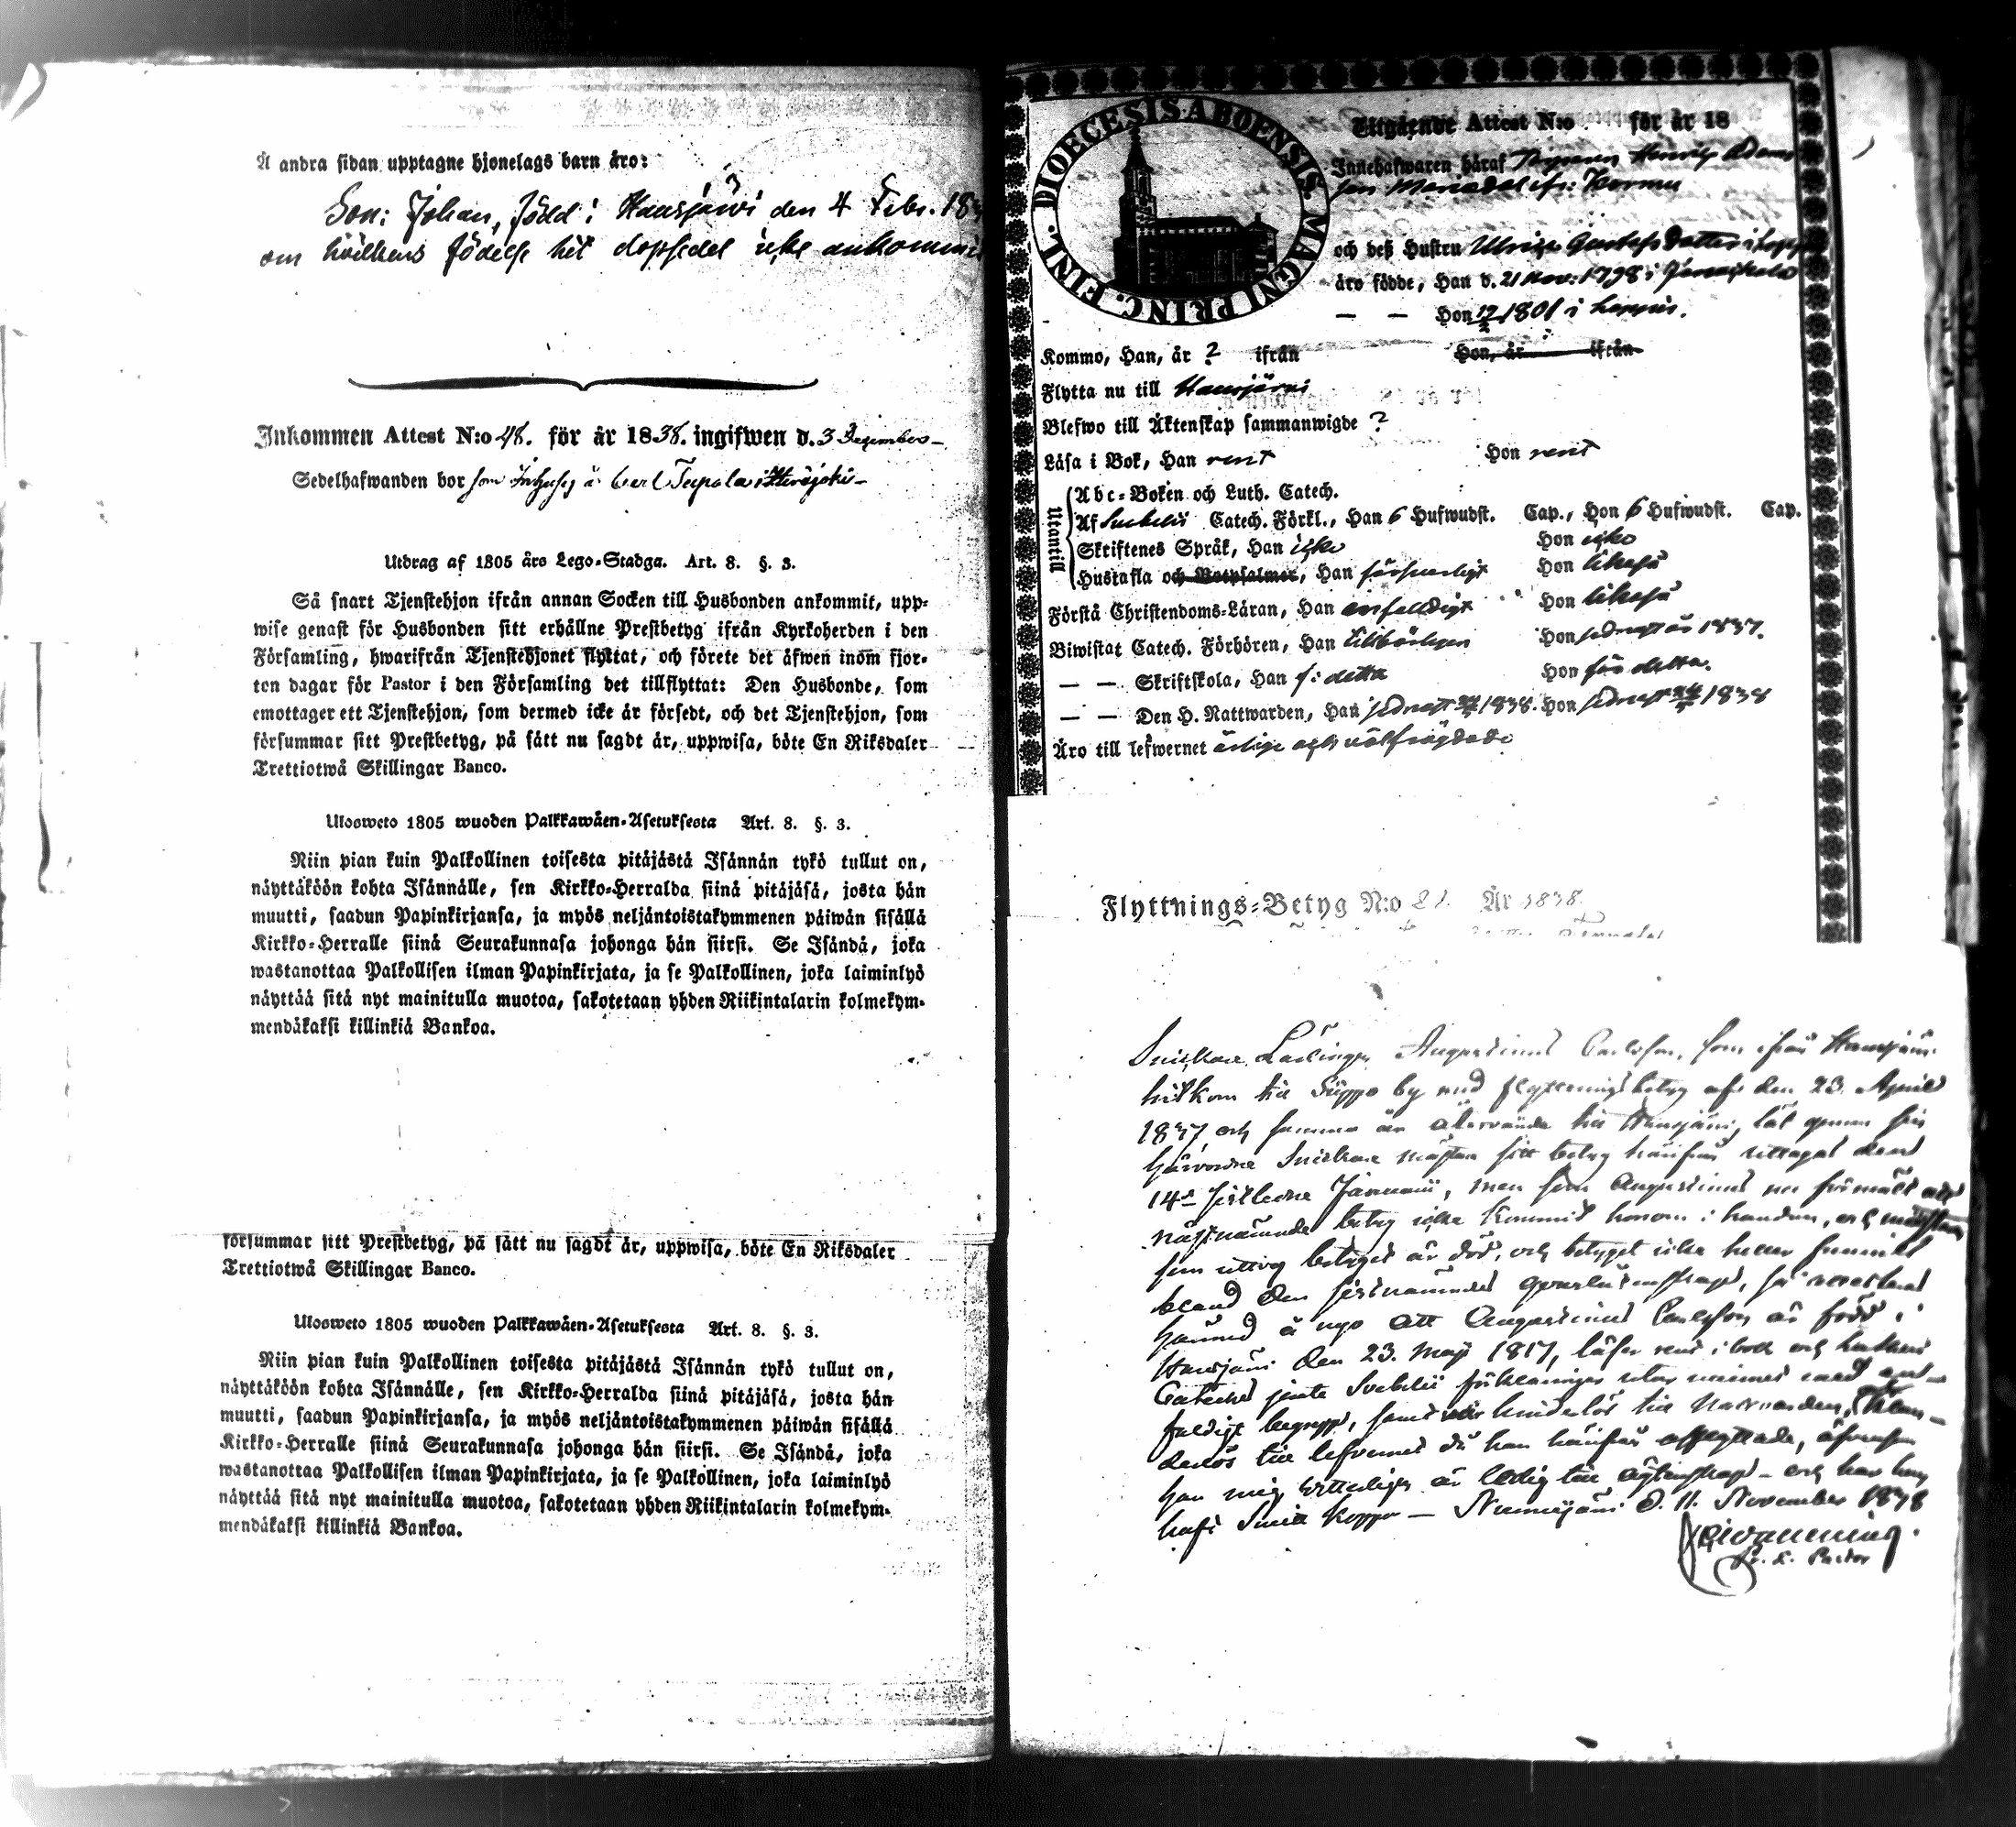 Å andra sidan upptagne hjonelags barn äro:
Son: Johan, född i Hausjärvi den 4 Febr. 18
om hvilkens födelse hit dopsedel icke ankommit
Inkommen Attest N:o 48. för år 1838. ingifwen d. 3 December
Sedelhafwanden bor som Inhyses å
Utdrag af 1805 års Lego-Stadga. Art. 8. §. 3.
Så snart Tjenstehjon ifrån annan Socken till Husbonden ankommit, upp-
wise genast för Husbonden sitt erhållne Prestbetyg ifrån Kyrkoherden i den
Församling, hwarifrån Tjenstehjonet flyttat, och förete det äfwen inom fjor-
ton dagar för Pastor i den Församling det tillflyttat: Den Husbonde, som
emottager ett Tjenstehjon, som dermed icke är försedt, och det Tjenstehjon, som
försummar sitt Prestbetyg, på sätt nu sagdt är, uppwisa, böte En Riksdaler
Trettiotwå Skillingar Banco.
Ulosweto 1805 wuoden Palkkawäen-Asetuksesta Art. 8. §. 3.
Niin pian kuin Palkollinen toisesta pitäjästä Isännän tykö tullut on,
näyttäköön kohta Isännälle, sen Kirkko-Herralda siinä pitäjäsä, josta hän
muutti, saadun Papinkirjansa, ja myös neljäntoistakymmenen päiwän sisällä
Kirkko-Herralle siinä Seurakunnasa johonga hän siirsi. Se Isändä, joka
wastanottaa Palkollisen ilman Papinkirjata, ja se Palkollinen, joka laiminlyö
näyttää sitä nyt mainitulla muotoa, sakotetaan yhden Riikintalarin kolmekym-
mendäkaksi killinkiä Bankoa.
försummar sitt Prestbetyg, på sätt nu sagdt är, uppwisa, böte En Riksdaler
Trettiotwå Skillingar Banco.
Ulosweto 1805 wuoden Palkkawäen-Asetuksesta Art. 8. §. 3.
Niin pian kuin Palkollinen toisesta pitäjästä Isännän tykö tullut on,
näyttäköön kohta Isännälle, sen Kirkko-Herralda siinä pitäjäsä, josta hän
muutti, saadun Papinkirjansa, ja myös neljäntoistakymmenen päiwän sisällä
Kirkko-Herralle siinä Seurakunnasa johonga hän siirsi. Se Isändä, joka
wastanottaa Palkollisen ilman Papinkirjata, ja se Palkollinen, joka laiminlyö
näyttää sitä nyt mainitulla muotoa, sakotetaan yhden Riikintalarin kolmekym-
mendäkaksi killinkiä Bankoa.
DIOECESIS ABOENSIS. MAGNI PRINC. FINL.
Utgående Attest N:o för år 18
Innehafwaren häraf Henric
och deß Hustru Ulrica Gustafs Dotter i
äro födde, Han d. 21 Nov: 1798 i
— — Hon 17/2 1801 i Loppis.
Kommo, Han, år ? ifrån Hon, år ifrån
Flytta nu till Hausjärvi
Blefwo till Äktenskap sammanwigde ?
Läsa i Bok, Han rent Hon rent
Utantill
Abc-Boken och Luth. Catech.
Af Svebelii Catech. Förkl., Han 6 Hufwudst. Cap., Hon 6 Hufwudst. Cap.
Skriftenes Språk, Han icke Hon icke
Hustafla och Botpsalmer, Han försvarligt Hon likaså
Förstå Christendoms-Läran, Han enfaldigt Hon likaså
Biwistat Catech. Förhören, Han Hon sednast år 1837.
— — Skriftskola, Han f: detta Hon för detta.
— — Den H. Nattwarden, Han sednast 1838. Hon sednast 1838
Äro till lefwernet ärlige och välfrägdade
Flyttnings-Betyg N:o 21. År 1838.
Snickare Lärlingen Augustinus Carlsson, som ifrån Hausjärvi
hitkom till by med flyttningsbetyg af den 23 April
1837, och samma år återvände till Hausjärvi, låt genom sin
Snickare mästare sitt betyg härifrån uttaga den
14de sistledne Januarii, men som Augustinus nu förmält att
nästnämnde betyg icke kommit honom i handen, och mästaren
som uttog betyget är död, och betyget icke heller funnits
bland den sistnämndes qvarlåtenskap, så
härmed å nyo att Augustinus Carlsson är född i
Hausjärvi den 23. Maji 1817, läser rent i bok och Lutheri
Cateches jemte Svebelii förklaringar utan minnes med en-
faldigt begrepp, samt var hinderlös till Nattvarden, klan-
derlös till lefvernet då han härifrån afflyttade, äfvensom
han mig vetterligen är ledig till äktenskap - och har han
haft Smitt koppor — Nurmijärvi d. 11. November 1838
Pastor